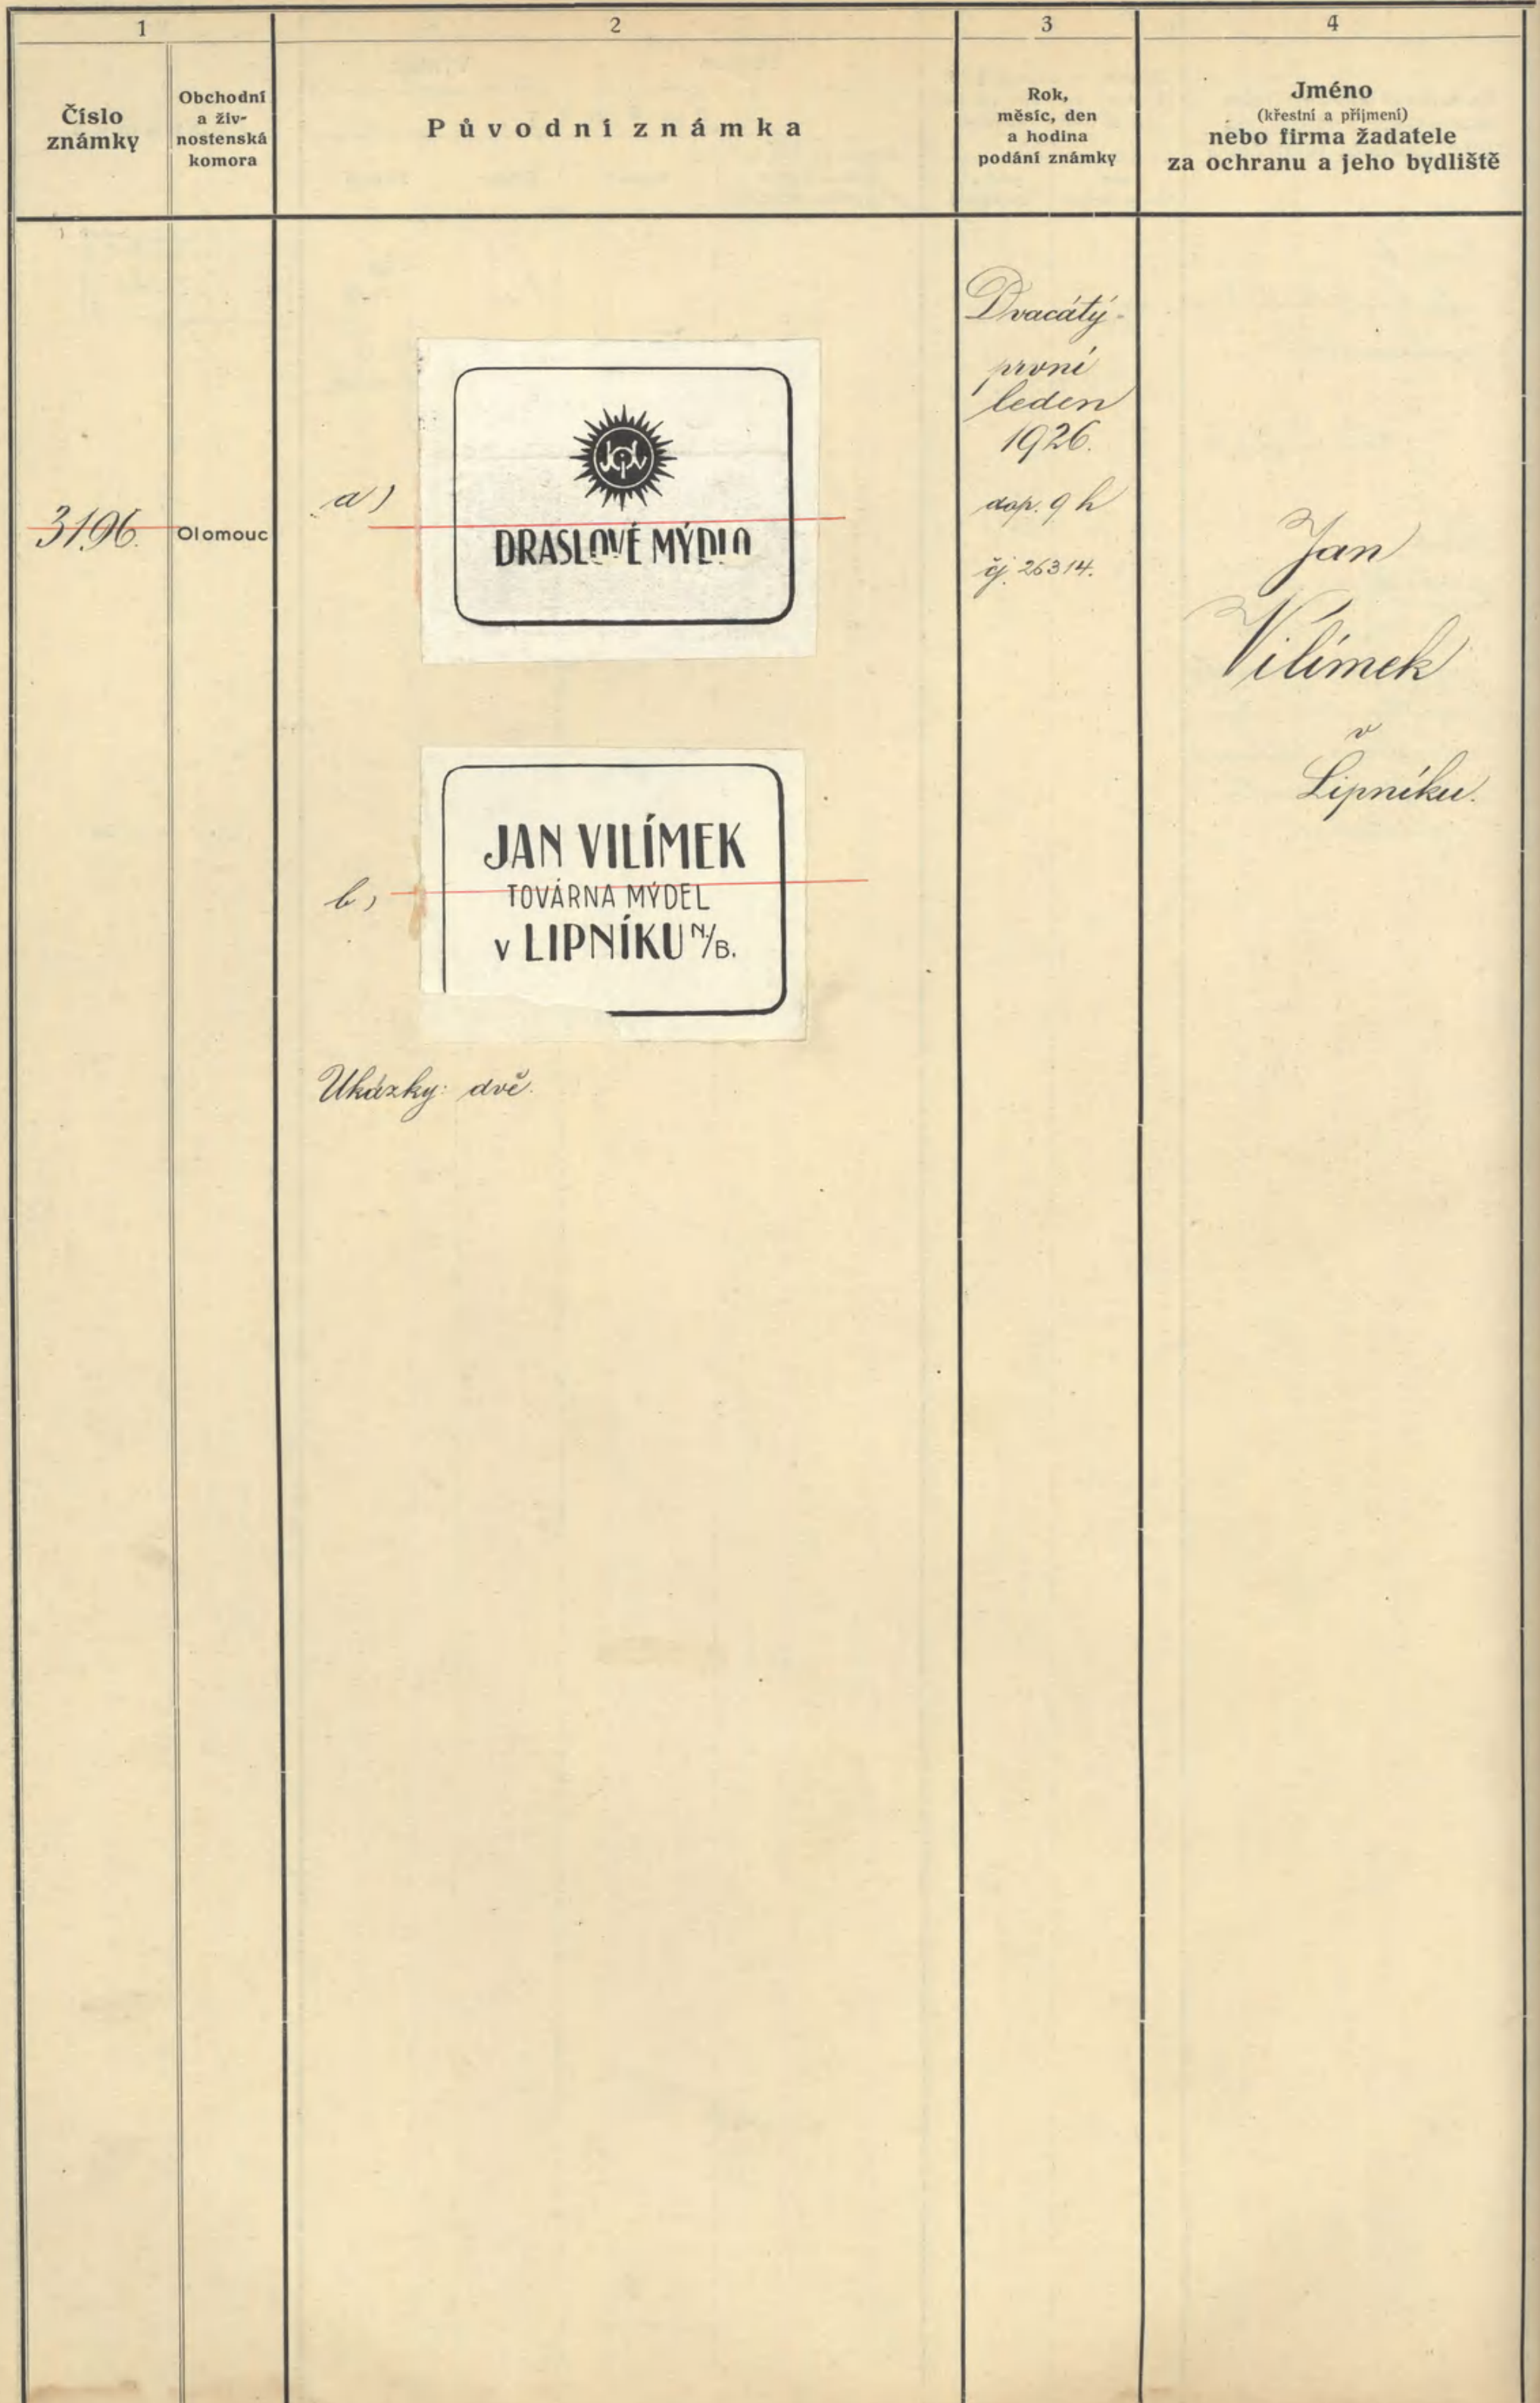 1
2
3
4
Číslo
známky
Obchodní
a živ-
nostenská
komora
Původní známka
Rok,
měsíc, den
a hodina
podání známky
Jméno
(křestní a příjmení)
nebo firma žadatele
za ochranu a jeho bydliště
3196.
Olomouc
a)
DRASLOVÉ MÝDLO
b)
JAN VILÍMEK
TOVÁRNA MÝDEL
v LIPNÍKU N/B.
Ukázky: dvě.
Dvacátý-
první
leden
1926.
dop. 9 h
čj. 26314.
Jan
Vilímek
v
Lipníku.